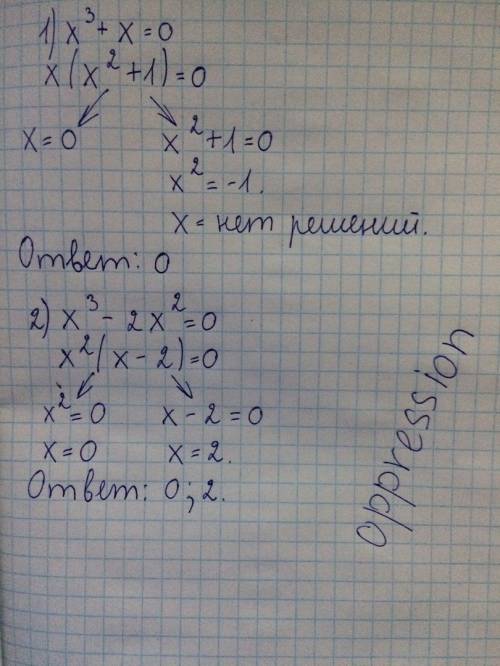 1) x³ + x = 0
x(x² + 1) = 0
x = 0 x² + 1 = 0
x² = -1.
x = нет решений.
Ответ: 0
2) x³ - 2x² = 0
x²(x - 2) = 0
x² = 0 x - 2 = 0
x = 0 x = 2.
Ответ: 0; 2.
oppression